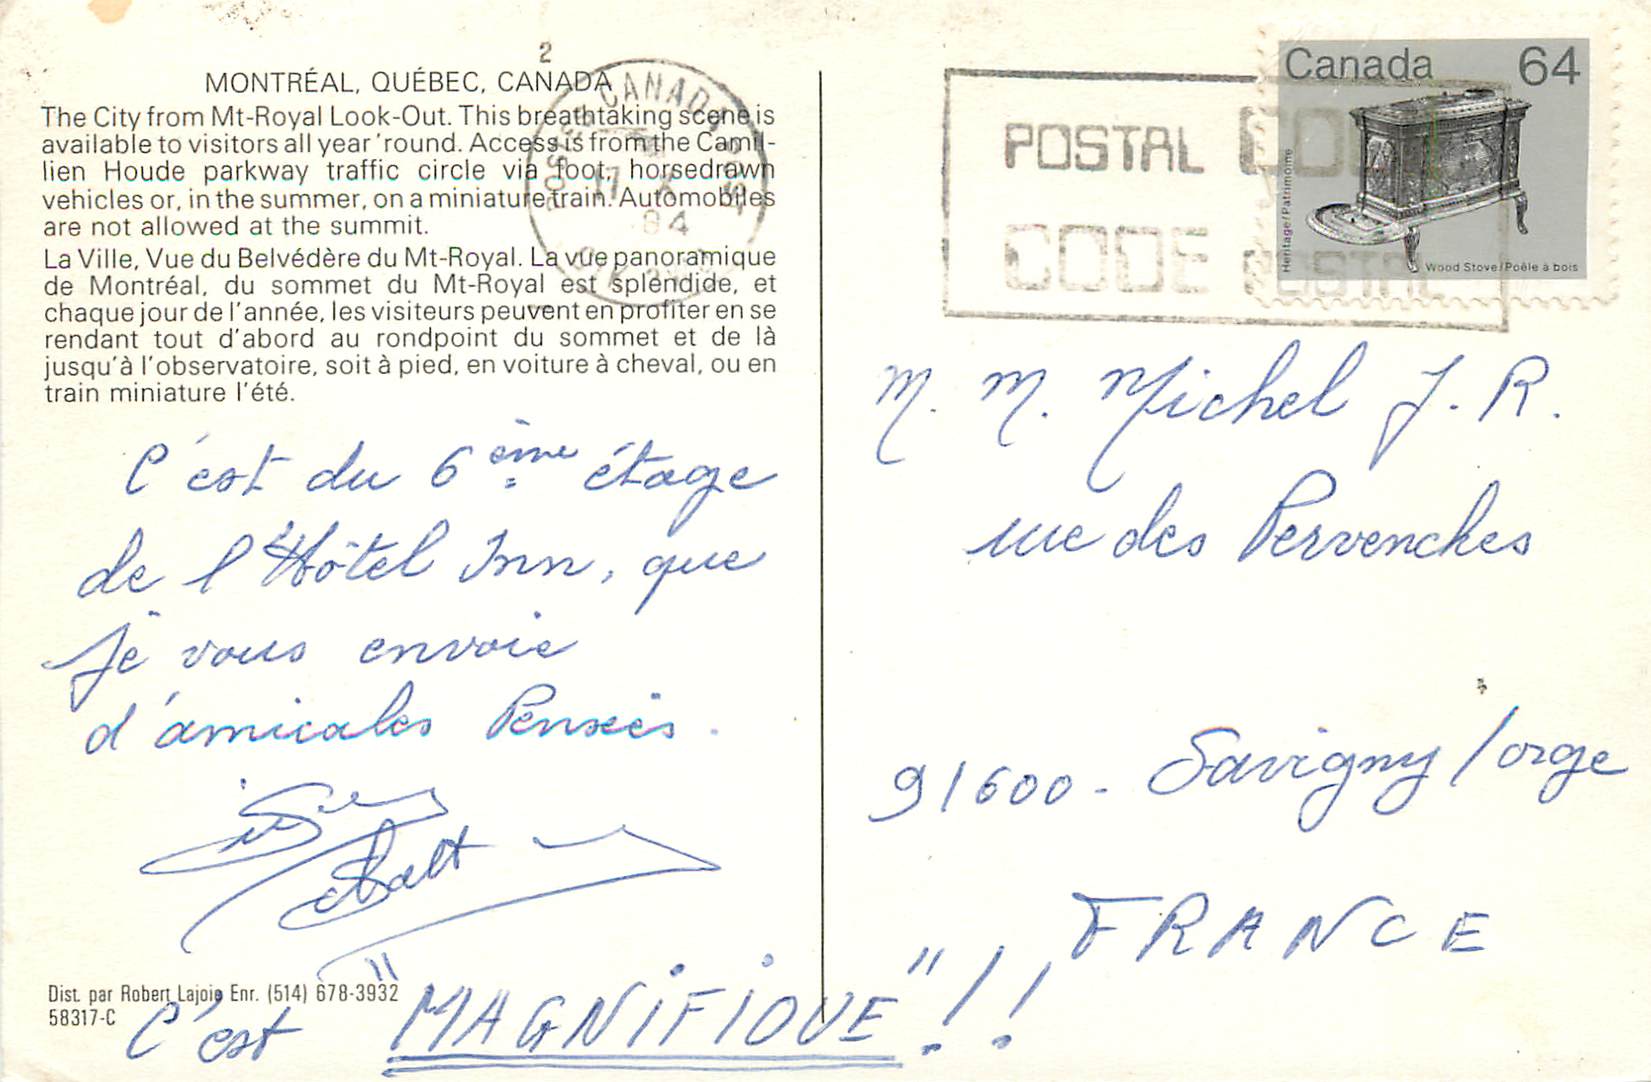 2
MONTRÉAL, QUÉBEC, CANADA
The City from Mt-Royal Look-Out. This breathtaking scene is
available to visitors all year 'round. Access is from the Camil-
lien Houde parkway traffic circle via foot, horsedrawn
vehicles or, in the summer, on a miniature train. Automobiles
are not allowed at the summit.
La Ville, Vue du Belvédère du Mt-Royal. La vue panoramique
de Montréal, du sommet du Mt-Royal est splendide, et
chaque jour de l'année, les visiteurs peuvent en profiter en se
rendant tout d'abord au rondpoint du sommet et de là
jusqu'à l'observatoire, soit à pied, en voiture à cheval, ou en
train miniature l'été.
C'est du 6ème étage
de l'Hôtel Inn, que
je vous envoie
d'amicales Pensées.
Dist. par Robert Lajoie Enr. (514) 678-3932
58317-C
C'est "MAGNiFiQUE"!!
CANADA
17
84
POSTAL CODE
CODE POSTAL
Canada 64
Heritage/Patrimoine
Wood Stove/Poêle à bois
M. M. Michel J. R.
rue des Pervenches
91600 - Savigny/orge
FRANCE